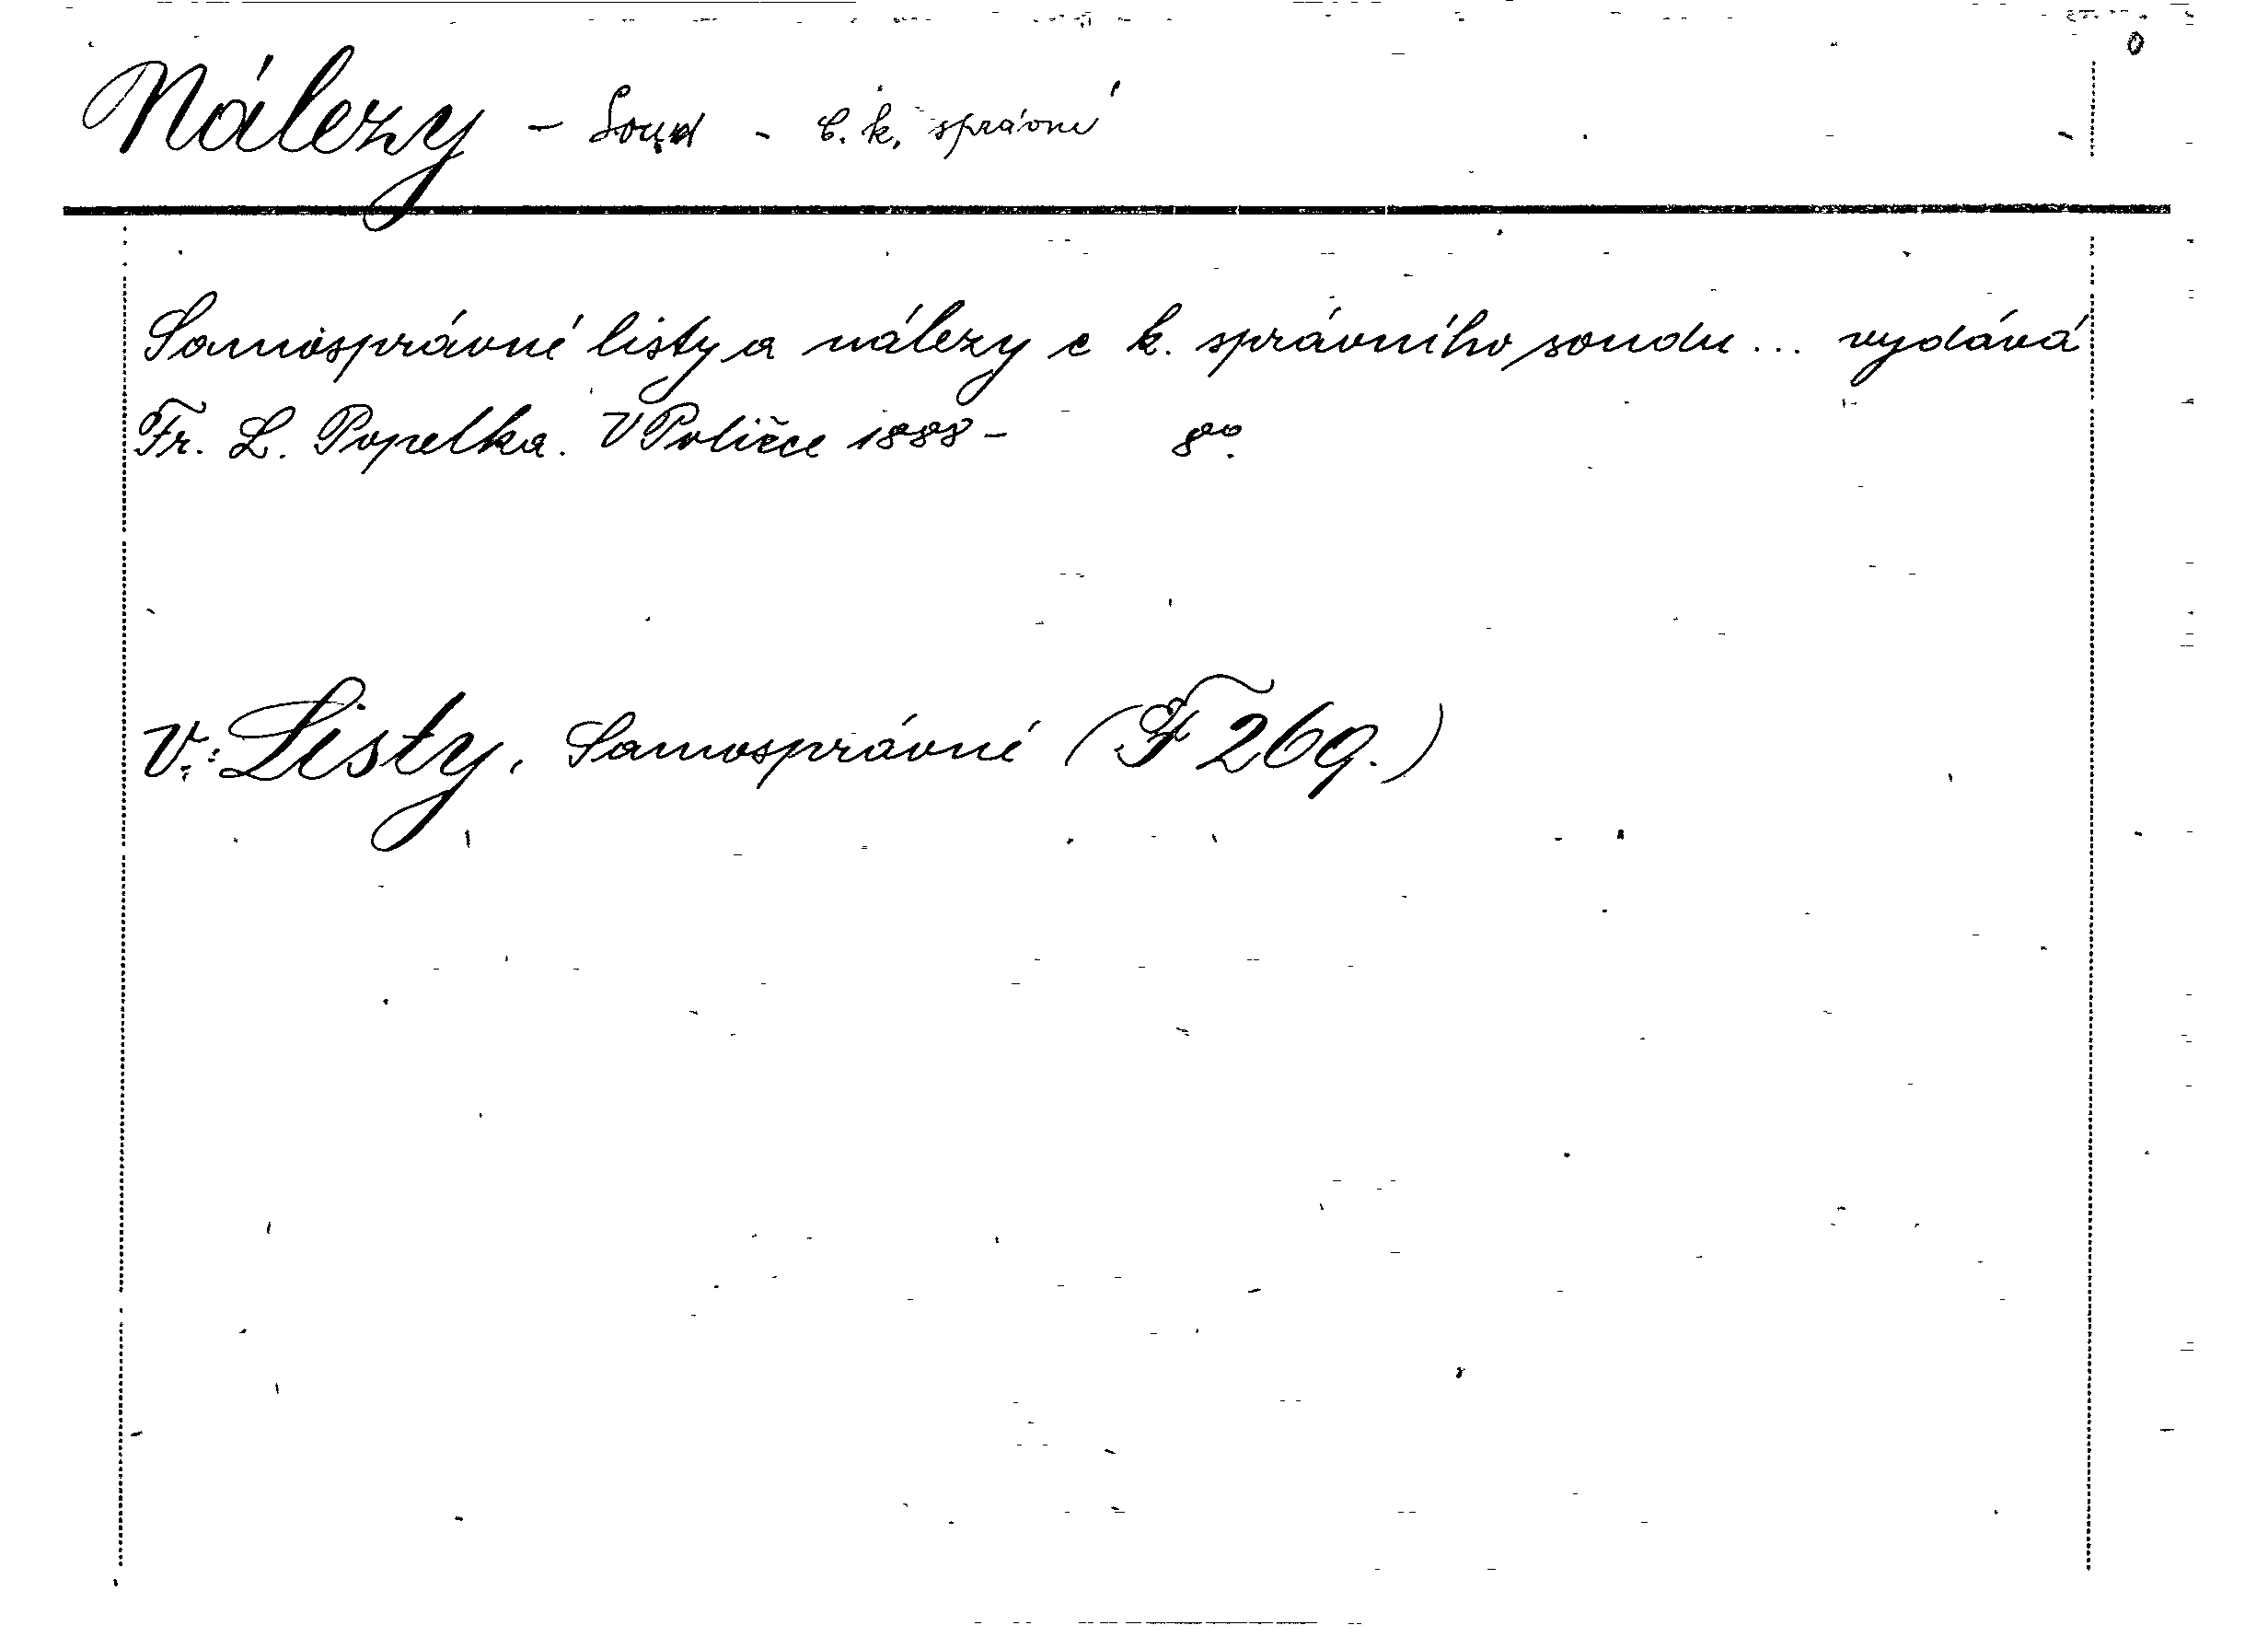 Nálezy - Soud - c. k. správní
Samosprávné listy a nálezy c k. správního soudu ... vydává
Fr. L. Popelka. V Poličce 1888 - 8º.
V.: Listy, Samosprávné (F 269.)